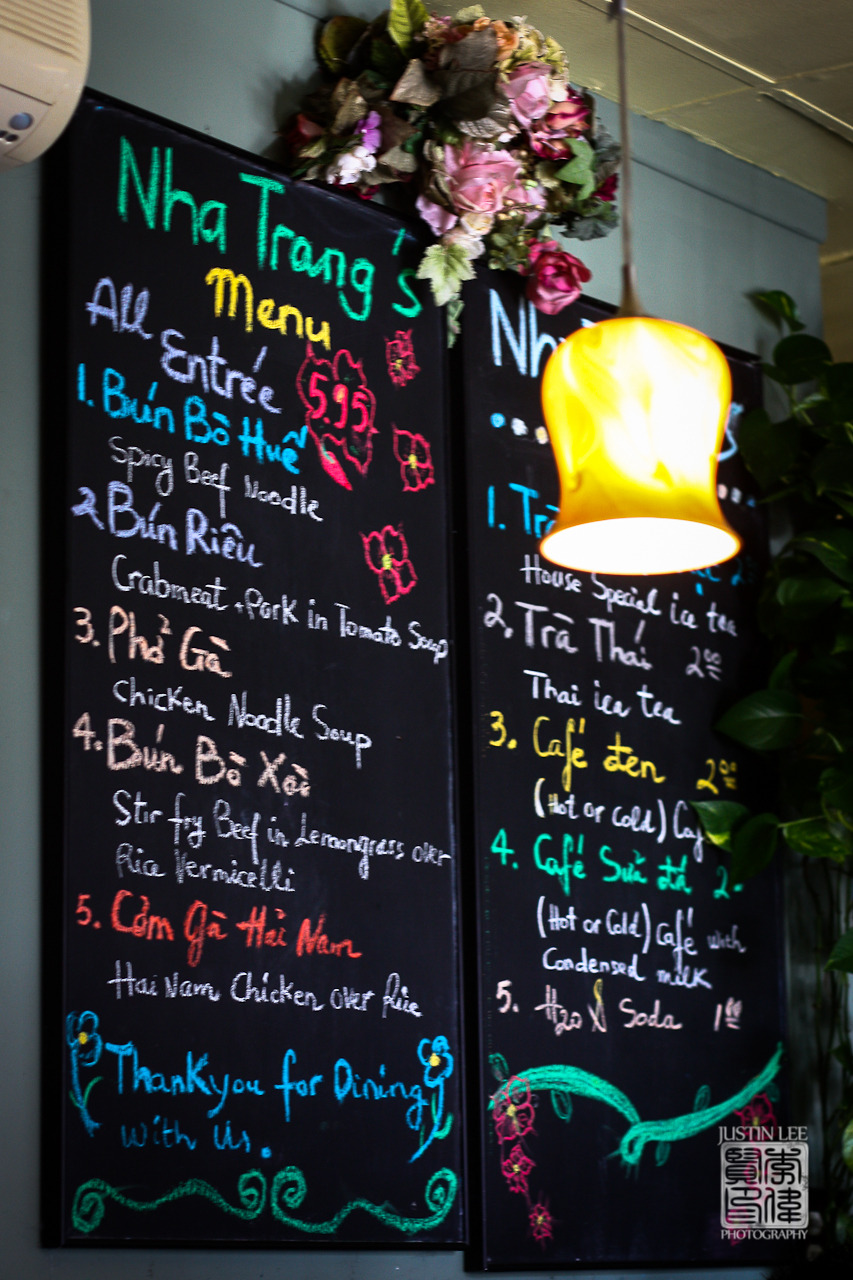 Nha Trang's
Menu
All
Entrée
5.95
1. Bún Bò Huế
Spicy Beef Noodle
2. Bún Riêu
Crabmeat + Pork in Tomato Soup
3. Phở Gà
Chicken Noodle Soup
4. Bún Bò Xào
Stir fry Beef in Lemongrass over
Rice Vermicelli
5. Cơm gà Hải Nam
Hai Nam Chicken over Rice
Thank you for Dining
with us.
1.
House Special ice tea
2. Trà Thái 2.00
Thai ice tea
3. Café đen 2.00
(Hot or Cold)
4. Café Sữa đá
(Hot or Cold) Café with
Condensed milk
5. H20 & Soda 1.00
JUSTIN LEE
PHOTOGRAPHY